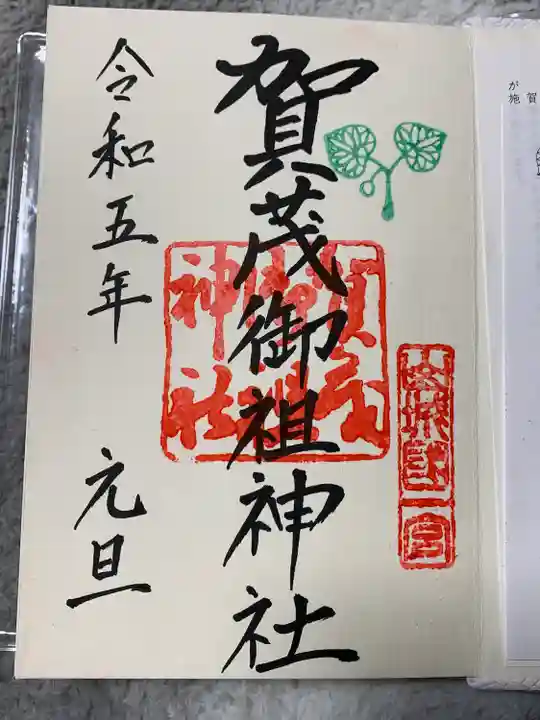 が
施 賀
賀茂御祖神社
山城國一宮
賀茂御祖神社
令和五年 元旦